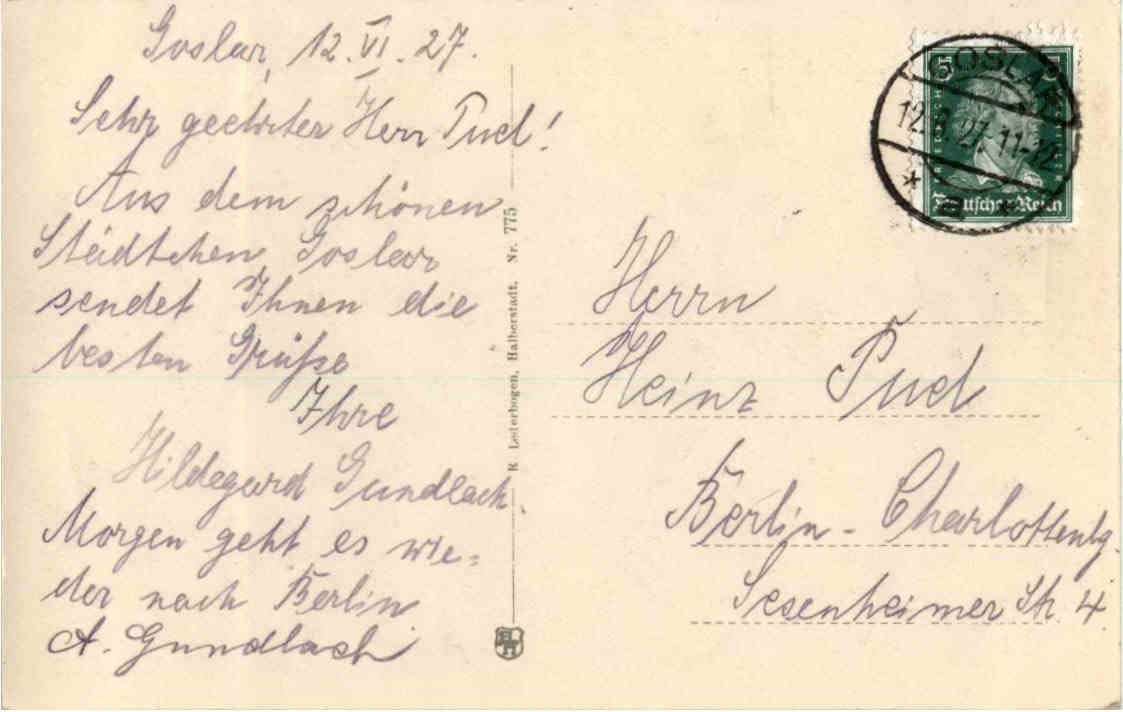 Goslar, 12.VI.27.
Sehr geehrter Herr Puel!
Aus dem schönen
Städtchen Goslar
sendet Ihnen die
besten Grüße
Ihre
Hildegard Gundlach.
Morgen geht es wie=
der nach Berlin.
A. Gundlach
R. Lederbogen, Halberstadt, Nr. 775
GOSLAR
12.6.27. 11-12
* a
Deutsches Reich
Herrn
Heinz Puel
Berlin - Charlottenbg.
Sesenheimer Str. 4.